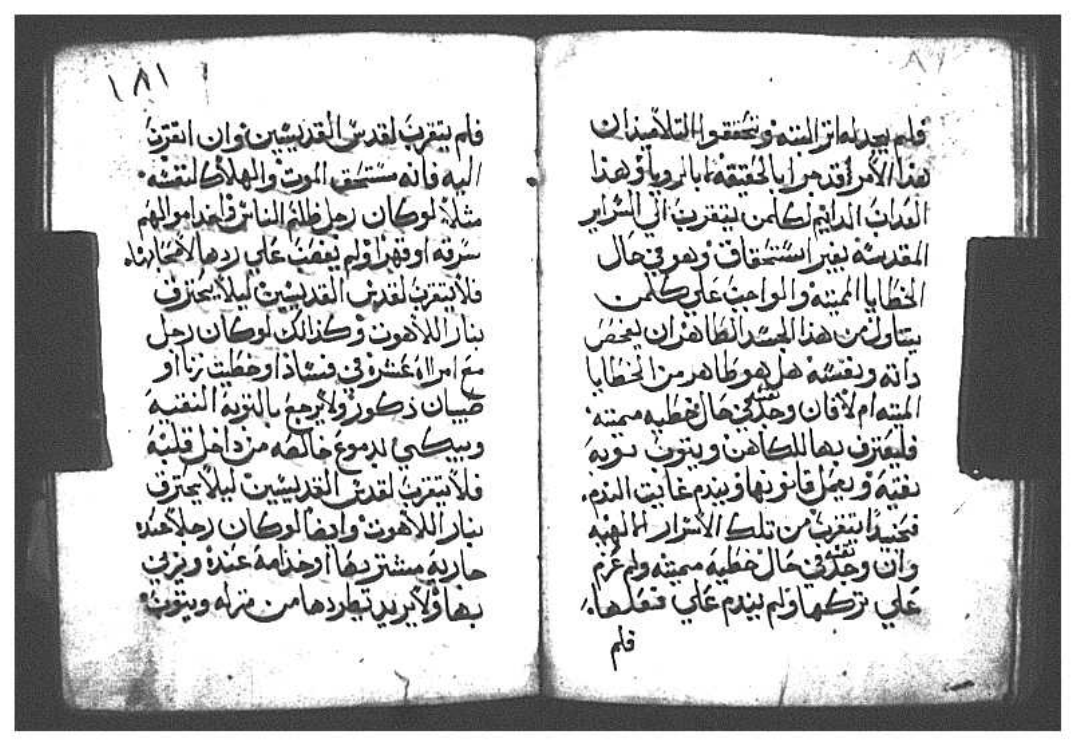 فلم يجد له اثر البته وتحققوا التلاميذ ان
هذا الامر قد جرا بالحقيقه لا بالرويا وهذا
العداب الدايم لكلمن يتقرب الي السراير
المقدسه بغير استحقاق وهو في حال
الخطايا المميته والواجب علي كلمن
يتناول من هذا الجسد الطاهر ان يفحص
داته ونفسه هل هو طاهر من الخطايا
المميته ام لا فان وجد نفسه في حال خطيه مميته
فليعترف بها للكاهن ويتوب توبه
نقيه ويعمل قانونها ويندم غايت الندم
فحينيدا يتقرب من تلك الاسرار الالهيه
وان وجد نفسه في حال خطيه مميته ولم عزم
علي تركها ولم يندم علي فعلها
فلم
١٨١
فلم يتقرب لقدس القديسين وان اتقرب
اليه فانه مستحق الموت والهلاك لنفسه
مثلا لو كان رجل ظلم الناس في اخد اموالهم
سرقه او قهرا ولم يغصب علي ردها لاصحابها
فلا يتقرب لقدس القديسين ليلا يحترق
بنار اللاهوت وكذالك لو كان رجل
مع امراه عشره في فساد او خطيت زنا او
صبيان ذكور ولا يرجع بالتوبه النقيه
ويبكي بدموع خالصه من داخل قلبه
فلا يتقرب لقدس القديسين ليلا يحترق
بنار اللاهوت وايضا لو كان رجلا عنده
جاريه مشتريها او خدامه عنده ويزني
بها ولا يريد يطردها من منزله ويتوب